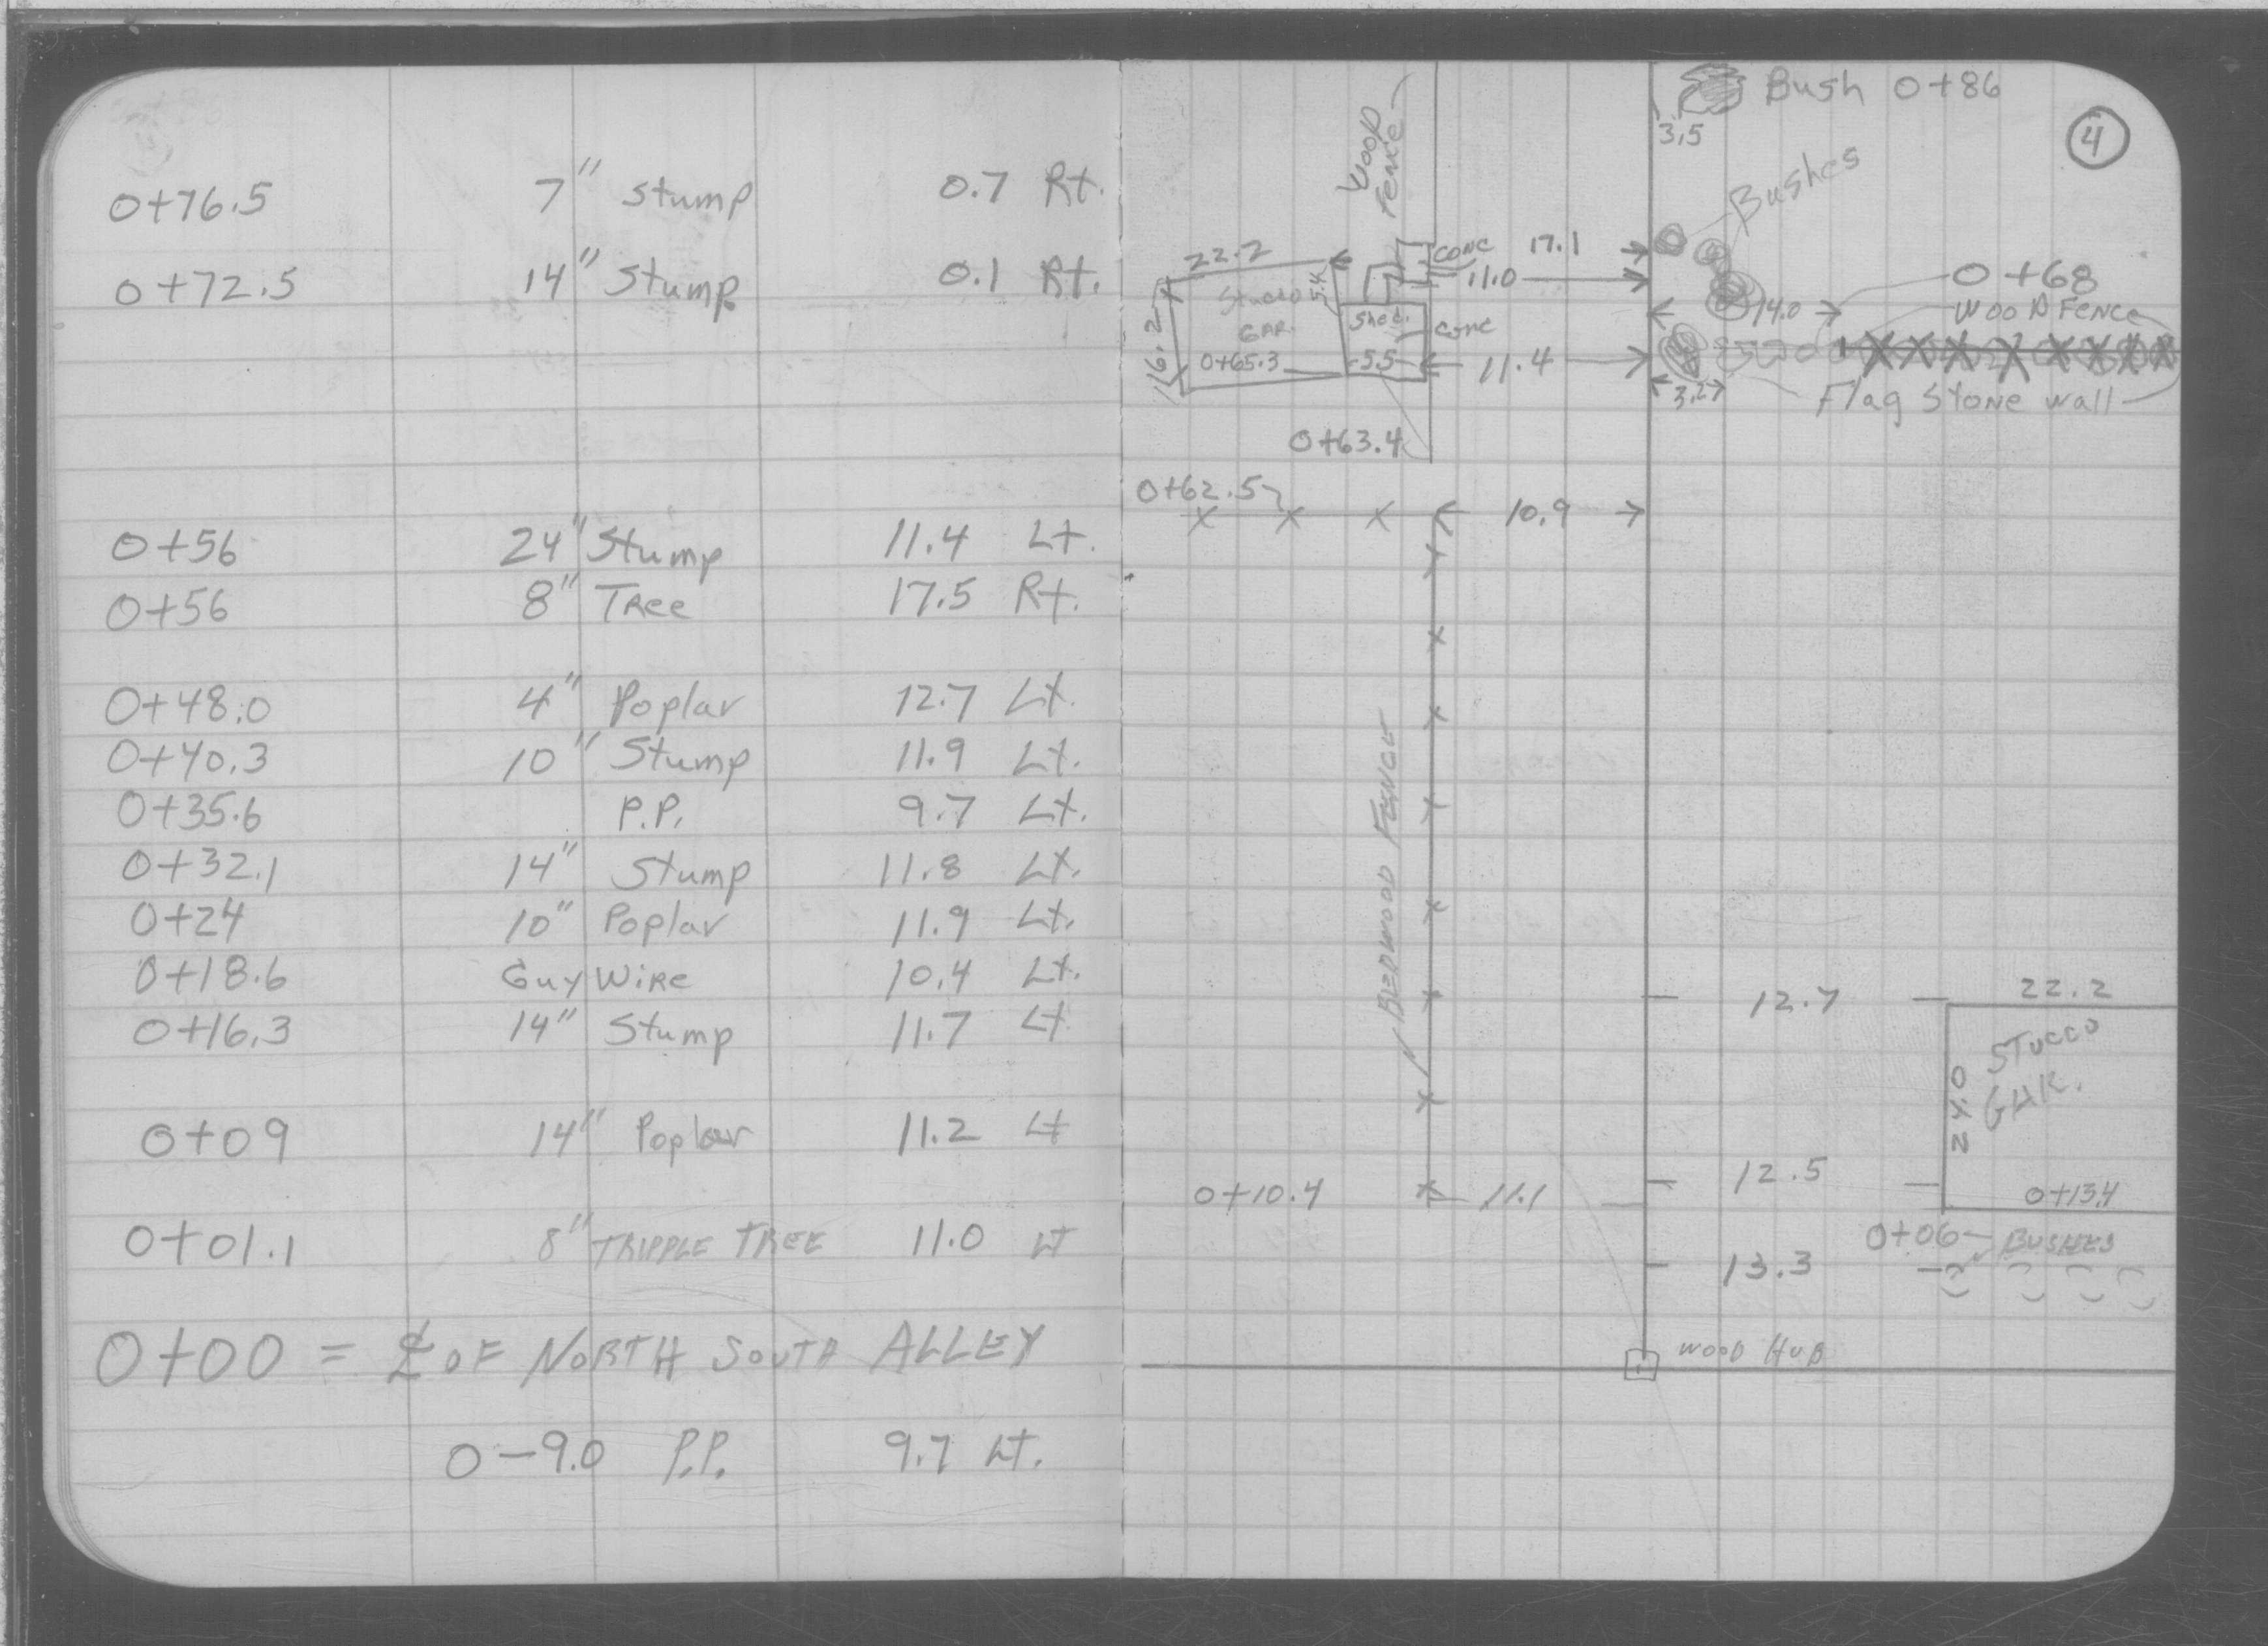 0+76.5 7" Stump 0.7 Rt.
0+72.5 14" Stump 0.1 Rt.
0+56 24" Stump 11.4 Lt.
0+56 8" Tree 17.5 Rt.
0+48.0 4" Poplar 12.7 Lt.
0+40.3 10" Stump 11.9 Lt.
0+35.6 P.P. 9.7 Lt.
0+32.1 14" Stump 11.8 Lt.
0+24 10" Poplar 11.9 Lt.
0+18.6 Guy Wire 10.4 Lt.
0+16.3 14" Stump 11.7 Lt
0+09 14" Poplar 11.2 Lt
0+01.1 8" TRIPPLE TREE 11.0 LT
0+00 = ℄ OF NORTH SOUTH ALLEY
0-9.0 P.P. 9.7 Lt.
Bush 0+86
3.5
4
Wood Fence
Bushes
22.2
conc 17.1
11.0
0+68
Stucco
5.4
16.2
GAR.
Shed
14.0
Wood Fence
conc
0+65.3
5.5
11.4
3.2
Flag Stone wall
0+63.4
0+62.5
10.9
12.7
22.2
STUCCO
GAR.
24.0
12.5
0+10.4
11.1
0+13.4
0+06
BUSHES
13.3
WOOD HUB